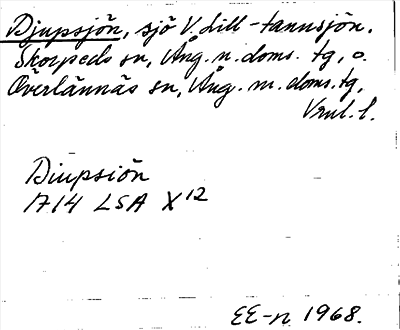 Djupsjön, sjö V. till -tannsjön.
Skorpeds sn, Ång. n. doms. tg, o.
Överlännäs sn, Ång. m. doms. tg,
Vrnl. l.
Diupsiön
1714 LSA X12
EE-n 1968.